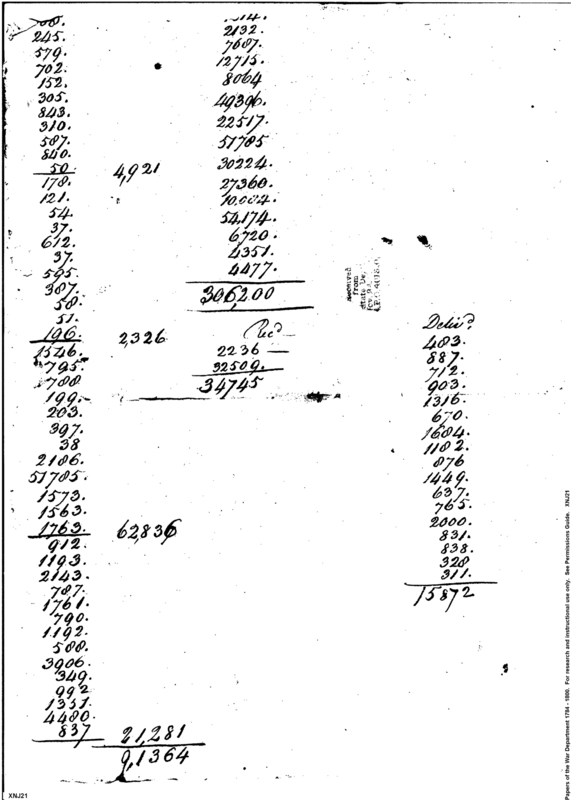 245.
579.
702.
152.
305.
843.
310.
587.
840.
50 4,921
178.
121.
54.
37.
612.
37.
595.
387.
58.
51.
196. 2,326
1546.
795.
788
199.
203.
397.
38
2186.
51785.
1573.
1563.
1763. 62,836
912.
1193.
2143.
787.
1761.
790.
1192.
588.
3906.
349.
992
1351.
4480.
837 21,281
9,1364
2132.
7687.
12715.
8064
49396.
22517.
51785
30224.
27360.
10,084.
54,174
6720.
4351.
4477.
306,200
Rec'd
2236 —
32509.
34745
Received
from
State De
Deliv'd.
483.
887.
712.
903.
1316.
670.
1684.
1182.
876
1449.
637.
765.
2000.
831.
838.
328
311.
15872
Papers of the War Department 1784 - 1800. For research and instructional use only. See Permissions Guide. XNJ21
XNJ21